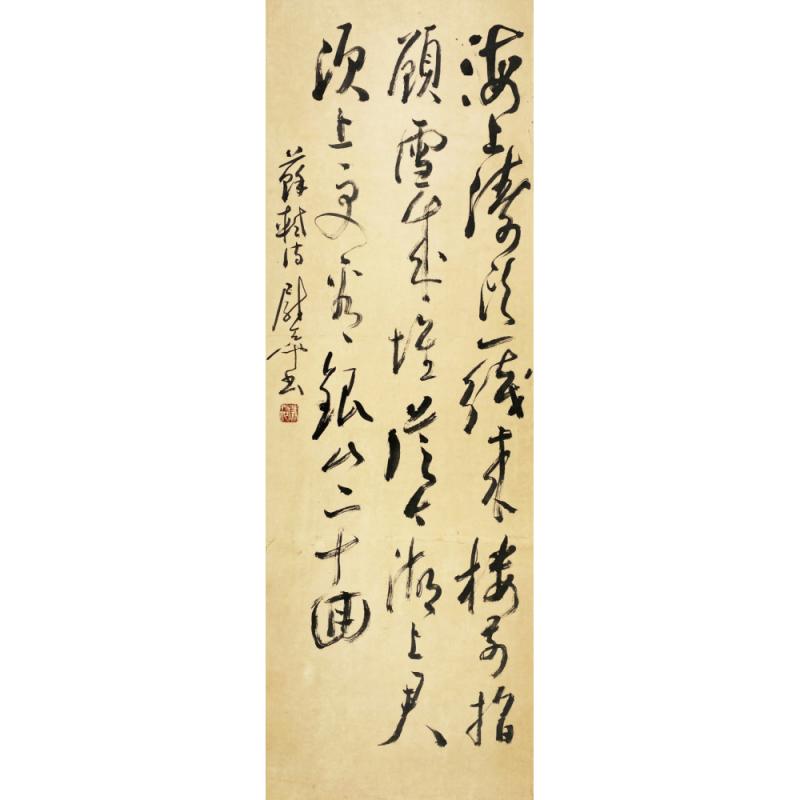 海上濤頭一綫來樓前指
顧雪成堆從今潮上君
須上更看銀山二十回
蘇軾詩 尉 書